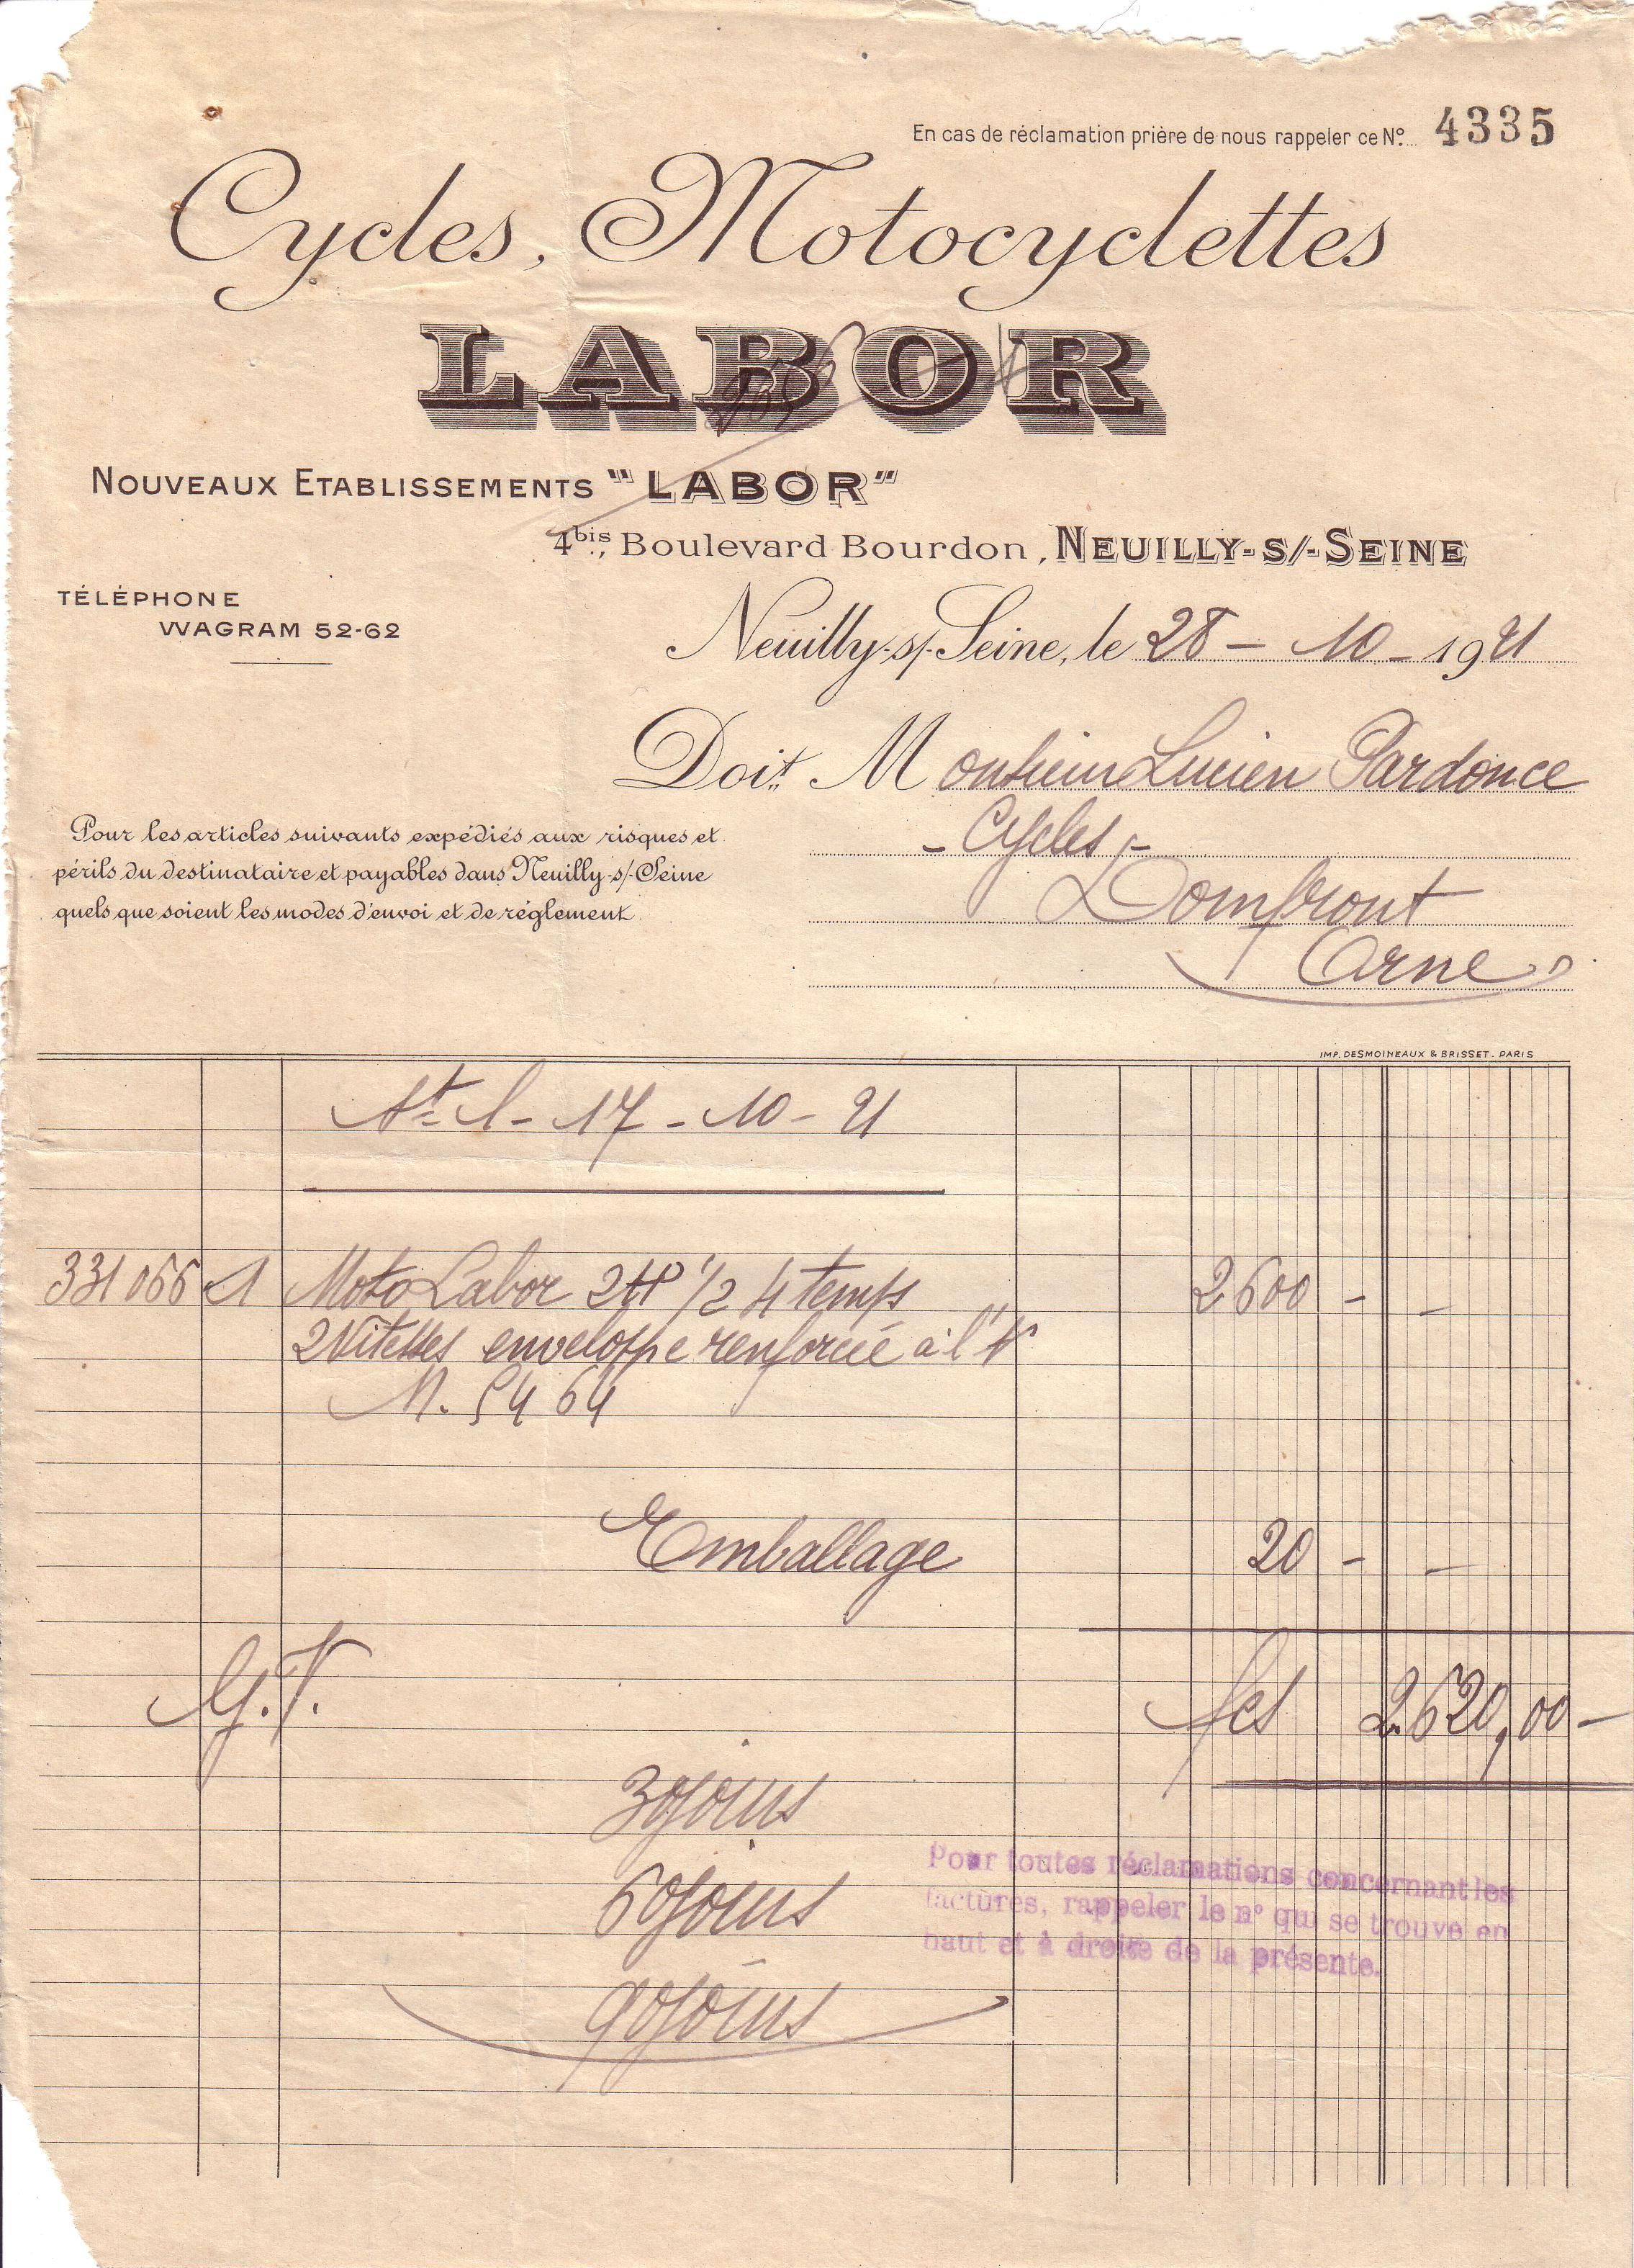 En cas de réclamation prière de nous rappeler ce Nº 4335
Cycles, Motocyclettes
LABOR
NOUVEAUX ETABLISSEMENTS "LABOR"
4bis, Boulevard Bourdon, NEUILLY-S/-SEINE
TÉLÉPHONE
WAGRAM 52-62
Neuilly-s/-Seine, le 28 - 10 - 1921
Doit Monsieur Lucien Pardonce
- Cycles -
Domfront
Orne
Pour les articles suivants expédiés aux risques et
périls du destinataire et payables dans Neuilly-s/-Seine
quels que soient les modes d'envoi et de règlement.
IMP. DESMOINEAUX & BRISSET - PARIS
17 - 10 - 21
331066 1 Moto Labor 2HP 1/2 4 temps 2600 - -
2 Vitesses enveloppe renforcée à l'
N. 5464
Emballage 20 - -
G.V. fcs 2.620,00 -
30 jours
60 jours
90 jours
Pour toutes réclamations concernant les
factures, rappeler le nº qui se trouve en
haut et à droite de la présente.